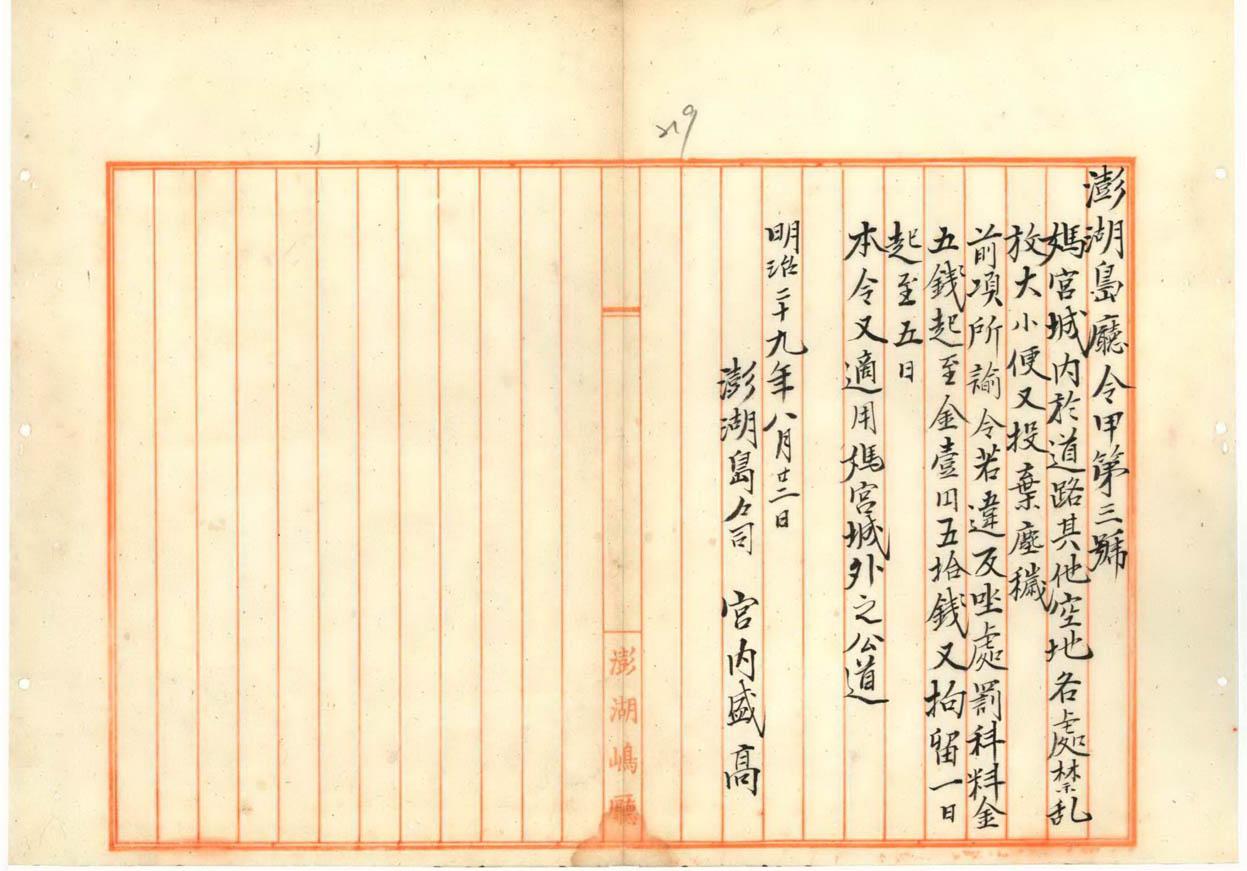 澎湖島廳令甲第三號
媽宮城内於道路其他空地各處禁乱
放大小便又投棄塵穢
前項所諭令若違反唑處罰科料金
五銭起至金壹円五拾銭又拘留一日
起至五日
本令又適用媽宮城外之公道
明治二十九年八月廿二日
澎湖島々司 宮内盛高
澎湖嶋廳